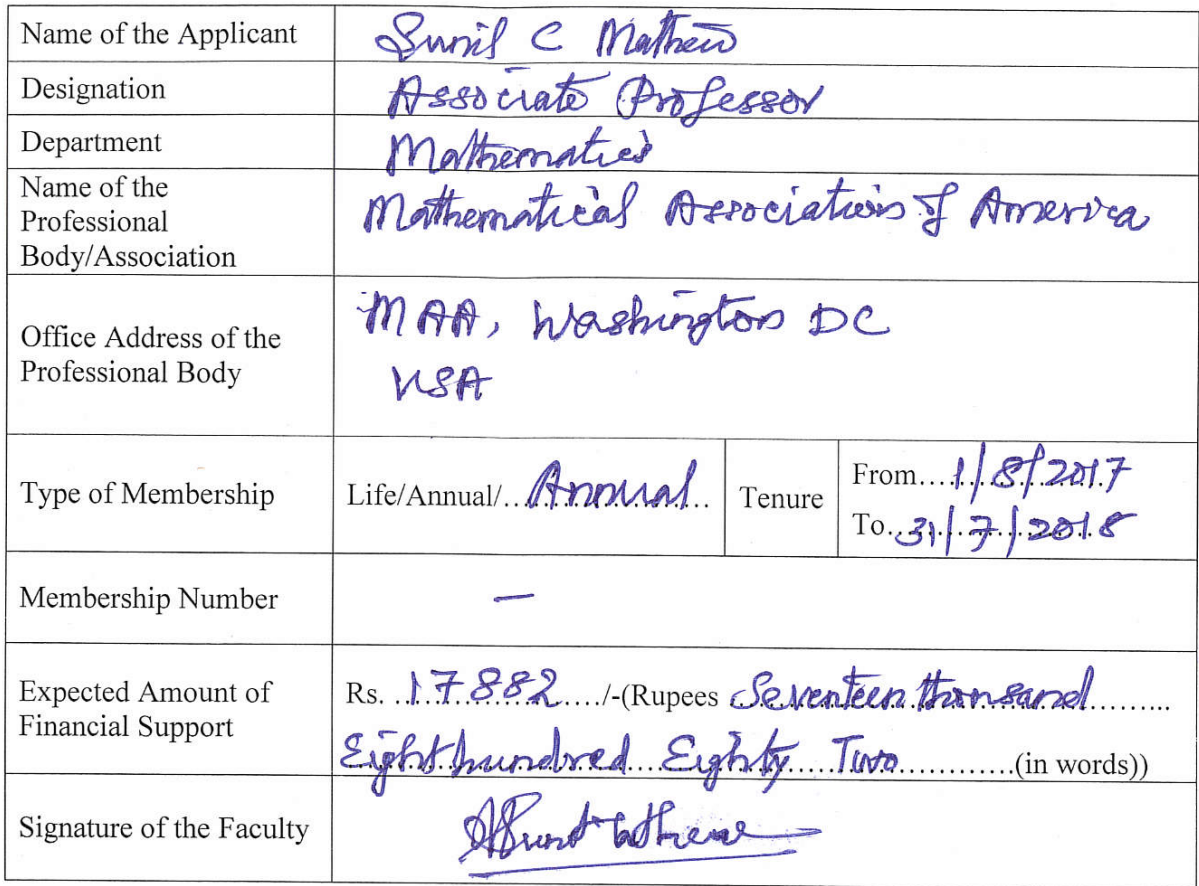 Name of the Applicant Sunil C Mathew
Designation Associate Professor
Department Mathematics
Name of the
Professional
Body/Association
Mathematical Association of America
Office Address of the
Professional Body
MAA, Washington DC
USA
Type of Membership Life/Annual/...Annual... Tenure
From....1/8/2017
To..31/7/2018
Membership Number —
Expected Amount of
Financial Support
Rs. ..17882..../-(Rupees Seventeen thousand........
Eight hundred Eighty Two.............(in words))
Signature of the Faculty